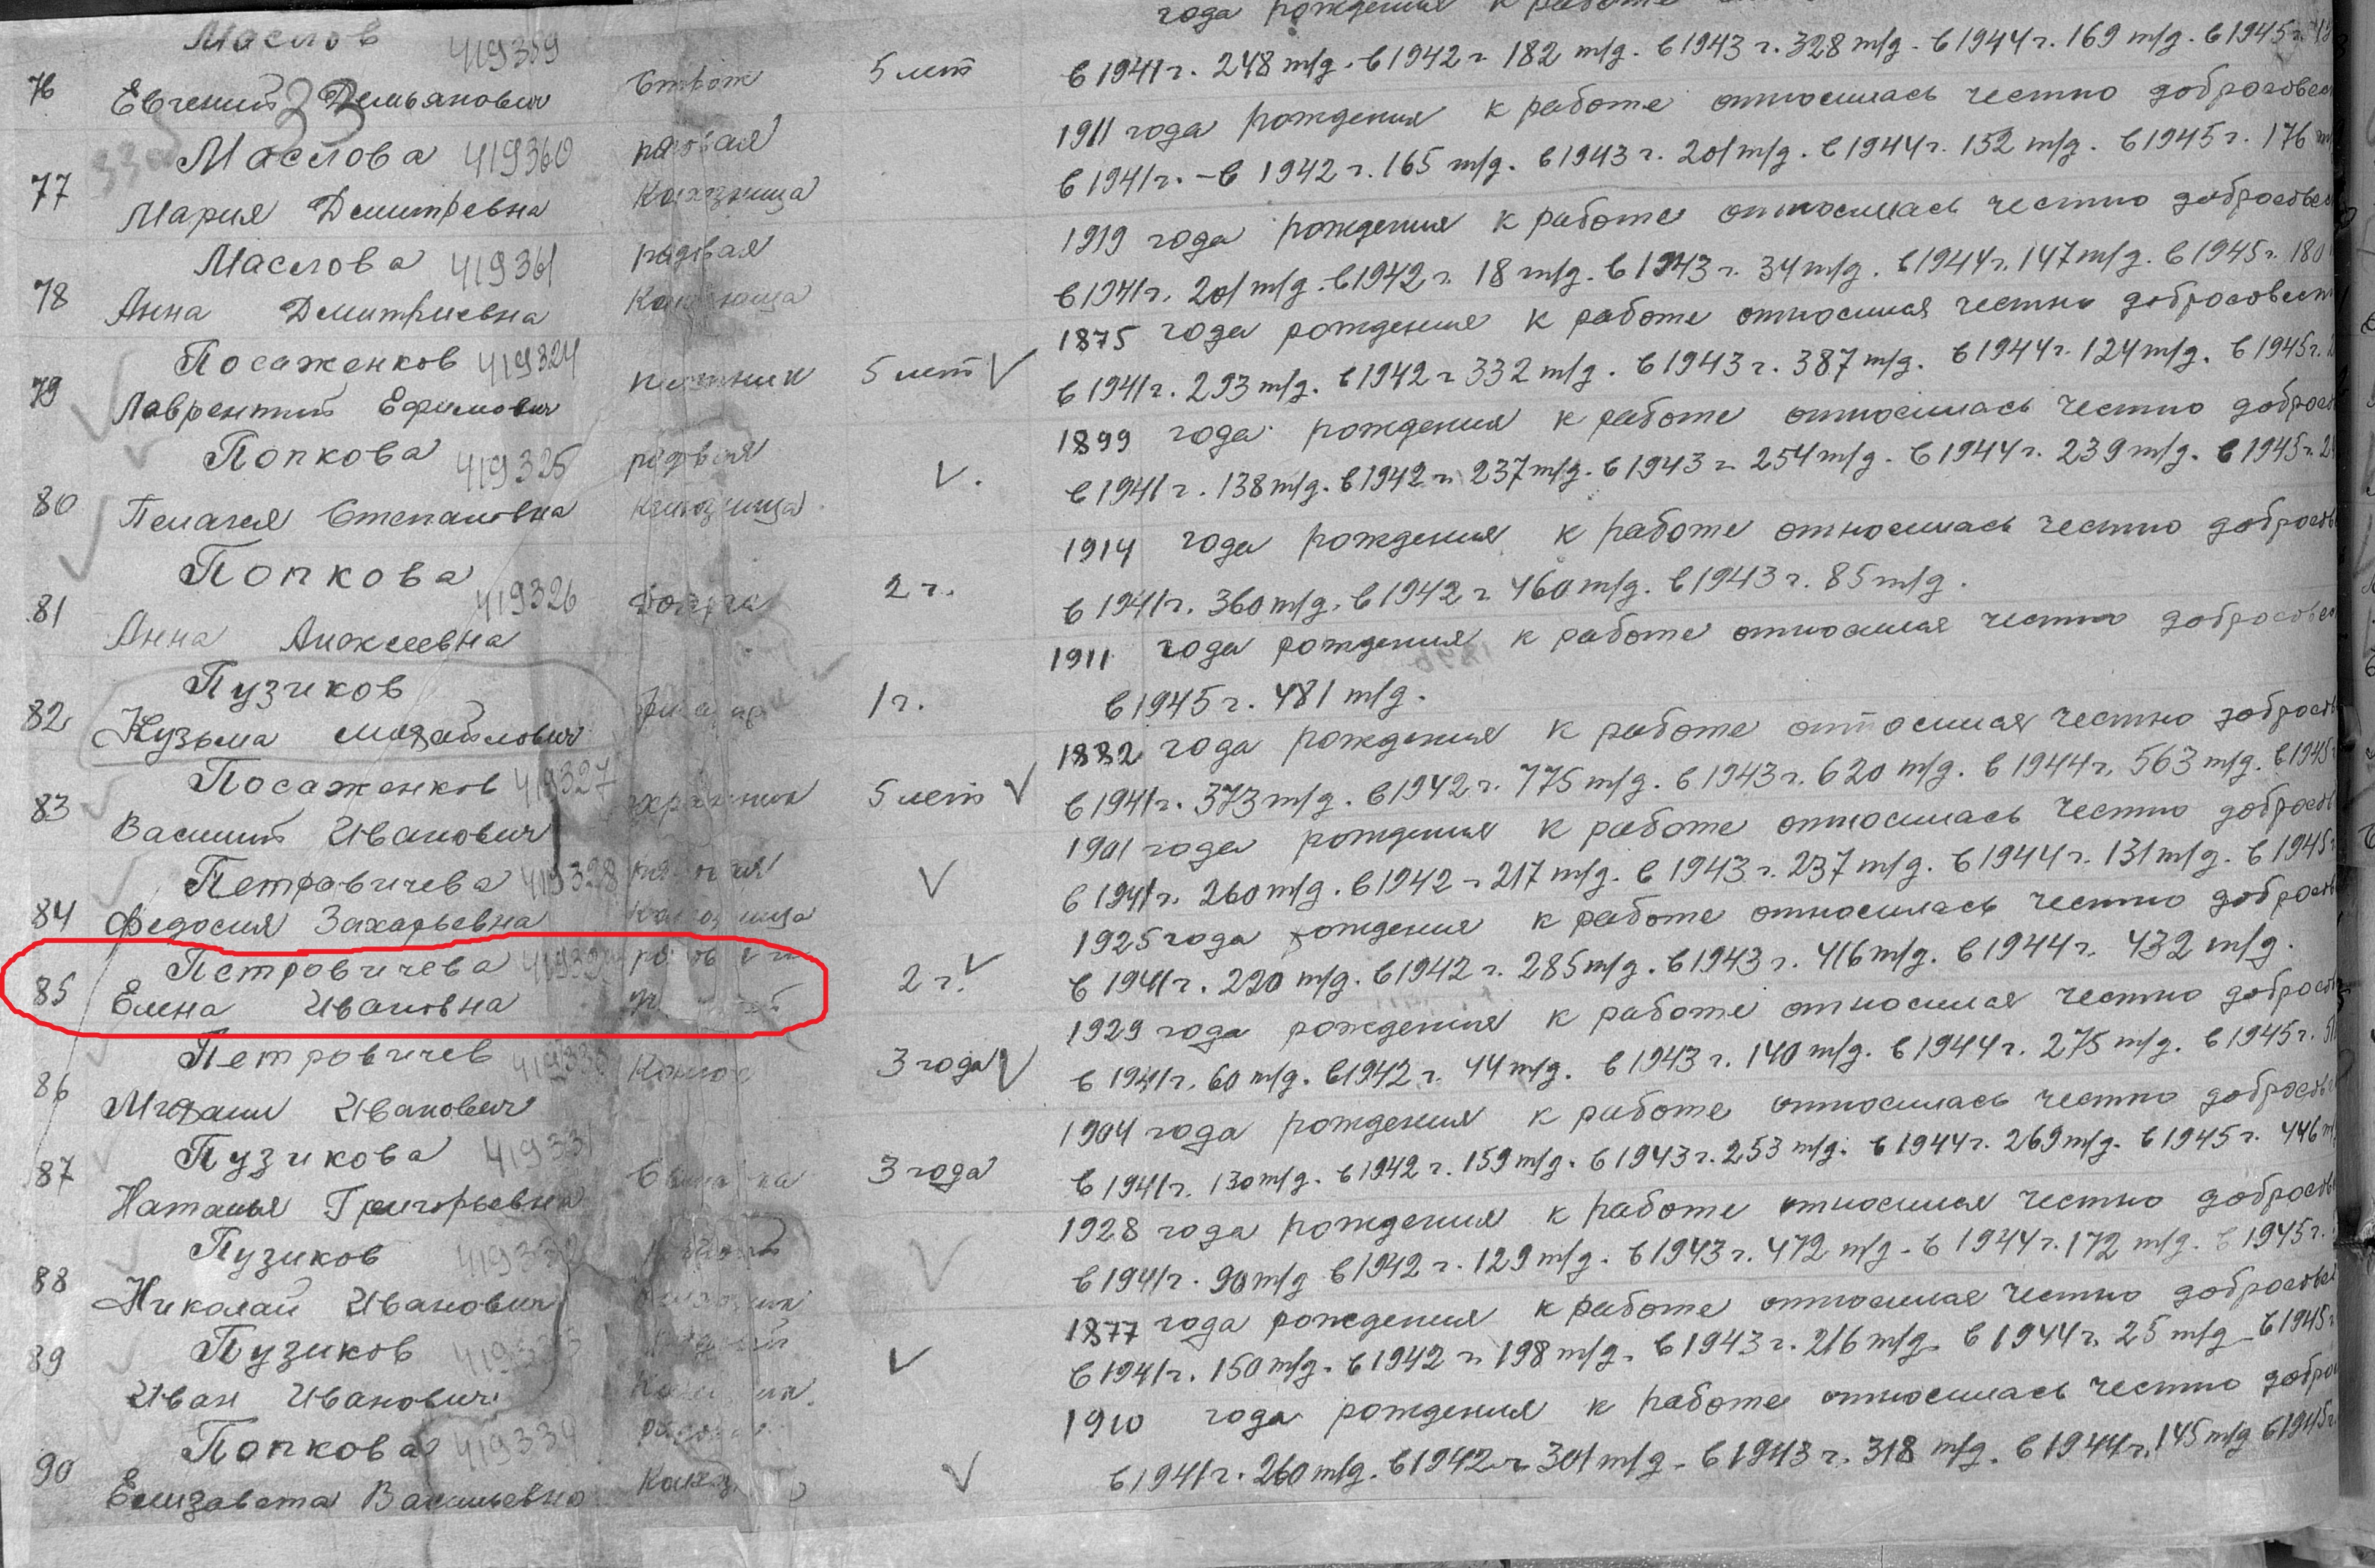 года рождения к работе
Маслов 419359
76 Евгений Демьянович Сторож 5 лет в 1941 г. 248 т/д. в 1942 г. 182 т/д. в 1943 г. 328 т/д. в 1944 г. 169 т/д. в 1945 г.
33
1911 года рождения к работе относилась честно добросовес
Маслова 419360 рядовая
77 Мария Дмитревна Колхозница в 1941 г. – в 1942 г. 165 т/д. в 1943 г. 201 т/д. в 1944 г. 152 т/д. в 1945 г. 176 т/
1919 года рождения к работе относилась честно добросовес
Маслова 419361 рядовая
78 Анна Дмитриевна Колхозница в 1941 г. 201 т/д. в 1942 г. 18 т/д. в 1943 г. 34 т/д. в 1944 г. 147 т/д. в 1945 г. 180
1875 года рождения к работе относился честно добросовест
Посаженков 419324
79 Лаврентий Ефимович плотник 5 лет в 1941 г. 293 т/д. в 1942 г. 332 т/д. в 1943 г. 387 т/д. в 1944 г. 124 т/д. в 1945 г.
1899 года рождения к работе относилась честно добросо
Попкова 419325 рядовая
80 Пелагея Степановна Колхозница в 1941 г. 138 т/д. в 1942 г. 237 т/д. в 1943 г. 254 т/д. в 1944 г. 239 т/д. в 1945 г. 2
1914 года рождения к работе относилась честно добросов
Попкова 419326
81 Анна Алексеевна Доярка 2 г. в 1941 г. 360 т/д. в 1942 г. 460 т/д. в 1943 г. 85 т/д.
1911 года рождения к работе относился честно добросовес
Пузиков
82 Кузьма Михайлович 1 г. в 1945 г. 481 т/д.
1882 года рождения к работе относился честно добросов
Посаженков 419327
83 Василий Иванович охранник 5 лет в 1941 г. 373 т/д. в 1942 г. 775 т/д. в 1943 г. 620 т/д. в 1944 г. 563 т/д. в 1945
1901 года рождения к работе относилась честно добросов
Петровичева 419328 рядовая
84 Федосия Захарьевна Колхозница в 1941 г. 260 т/д. в 1942 г. 217 т/д. в 1943 г. 237 т/д. в 1944 г. 131 т/д. в 1945
1925 года рождения к работе относилась честно добросов
Петровичева
85 Елена Ивановна 2 г. в 1941 г. 220 т/д. в 1942 г. 285 т/д. в 1943 г. 416 т/д. в 1944 г. 432 т/д.
1929 года рождения к работе относился честно добросов
Петровичев 419330
86 Михаил Иванович Конюх 3 года в 1941 г. 60 т/д. в 1942 г. 44 т/д. в 1943 г. 140 т/д. в 1944 г. 275 т/д. в 1945 г.
1904 года рождения к работе относилась честно добросов
Пузикова 419331
87 Наталья Григорьевна 3 года в 1941 г. 130 т/д. в 1942 г. 159 т/д. в 1943 г. 253 т/д. в 1944 г. 269 т/д. в 1945 г. 446 т
1928 года рождения к работе относился честно добросов
Пузиков 419332
88 Николай Иванович в 1941 г. 90 т/д в 1942 г. 129 т/д. в 1943 г. 472 т/д. в 1944 г. 172 т/д. в 1945 г.
1877 года рождения к работе относился честно добросовес
Пузиков 419333 рядовой
89 Иван Иванович в 1941 г. 150 т/д. в 1942 г. 198 т/д. в 1943 г. 216 т/д. в 1944 г. 25 т/д в 1945
1910 года рождения к работе относилась честно добро
Попкова 419334 рядовая
90 Елизавета Васильевна в 1941 г. 260 т/д. в 1942 г. 301 т/д. в 1943 г. 318 т/д. в 1944 г. 145 т/д в 1945 г